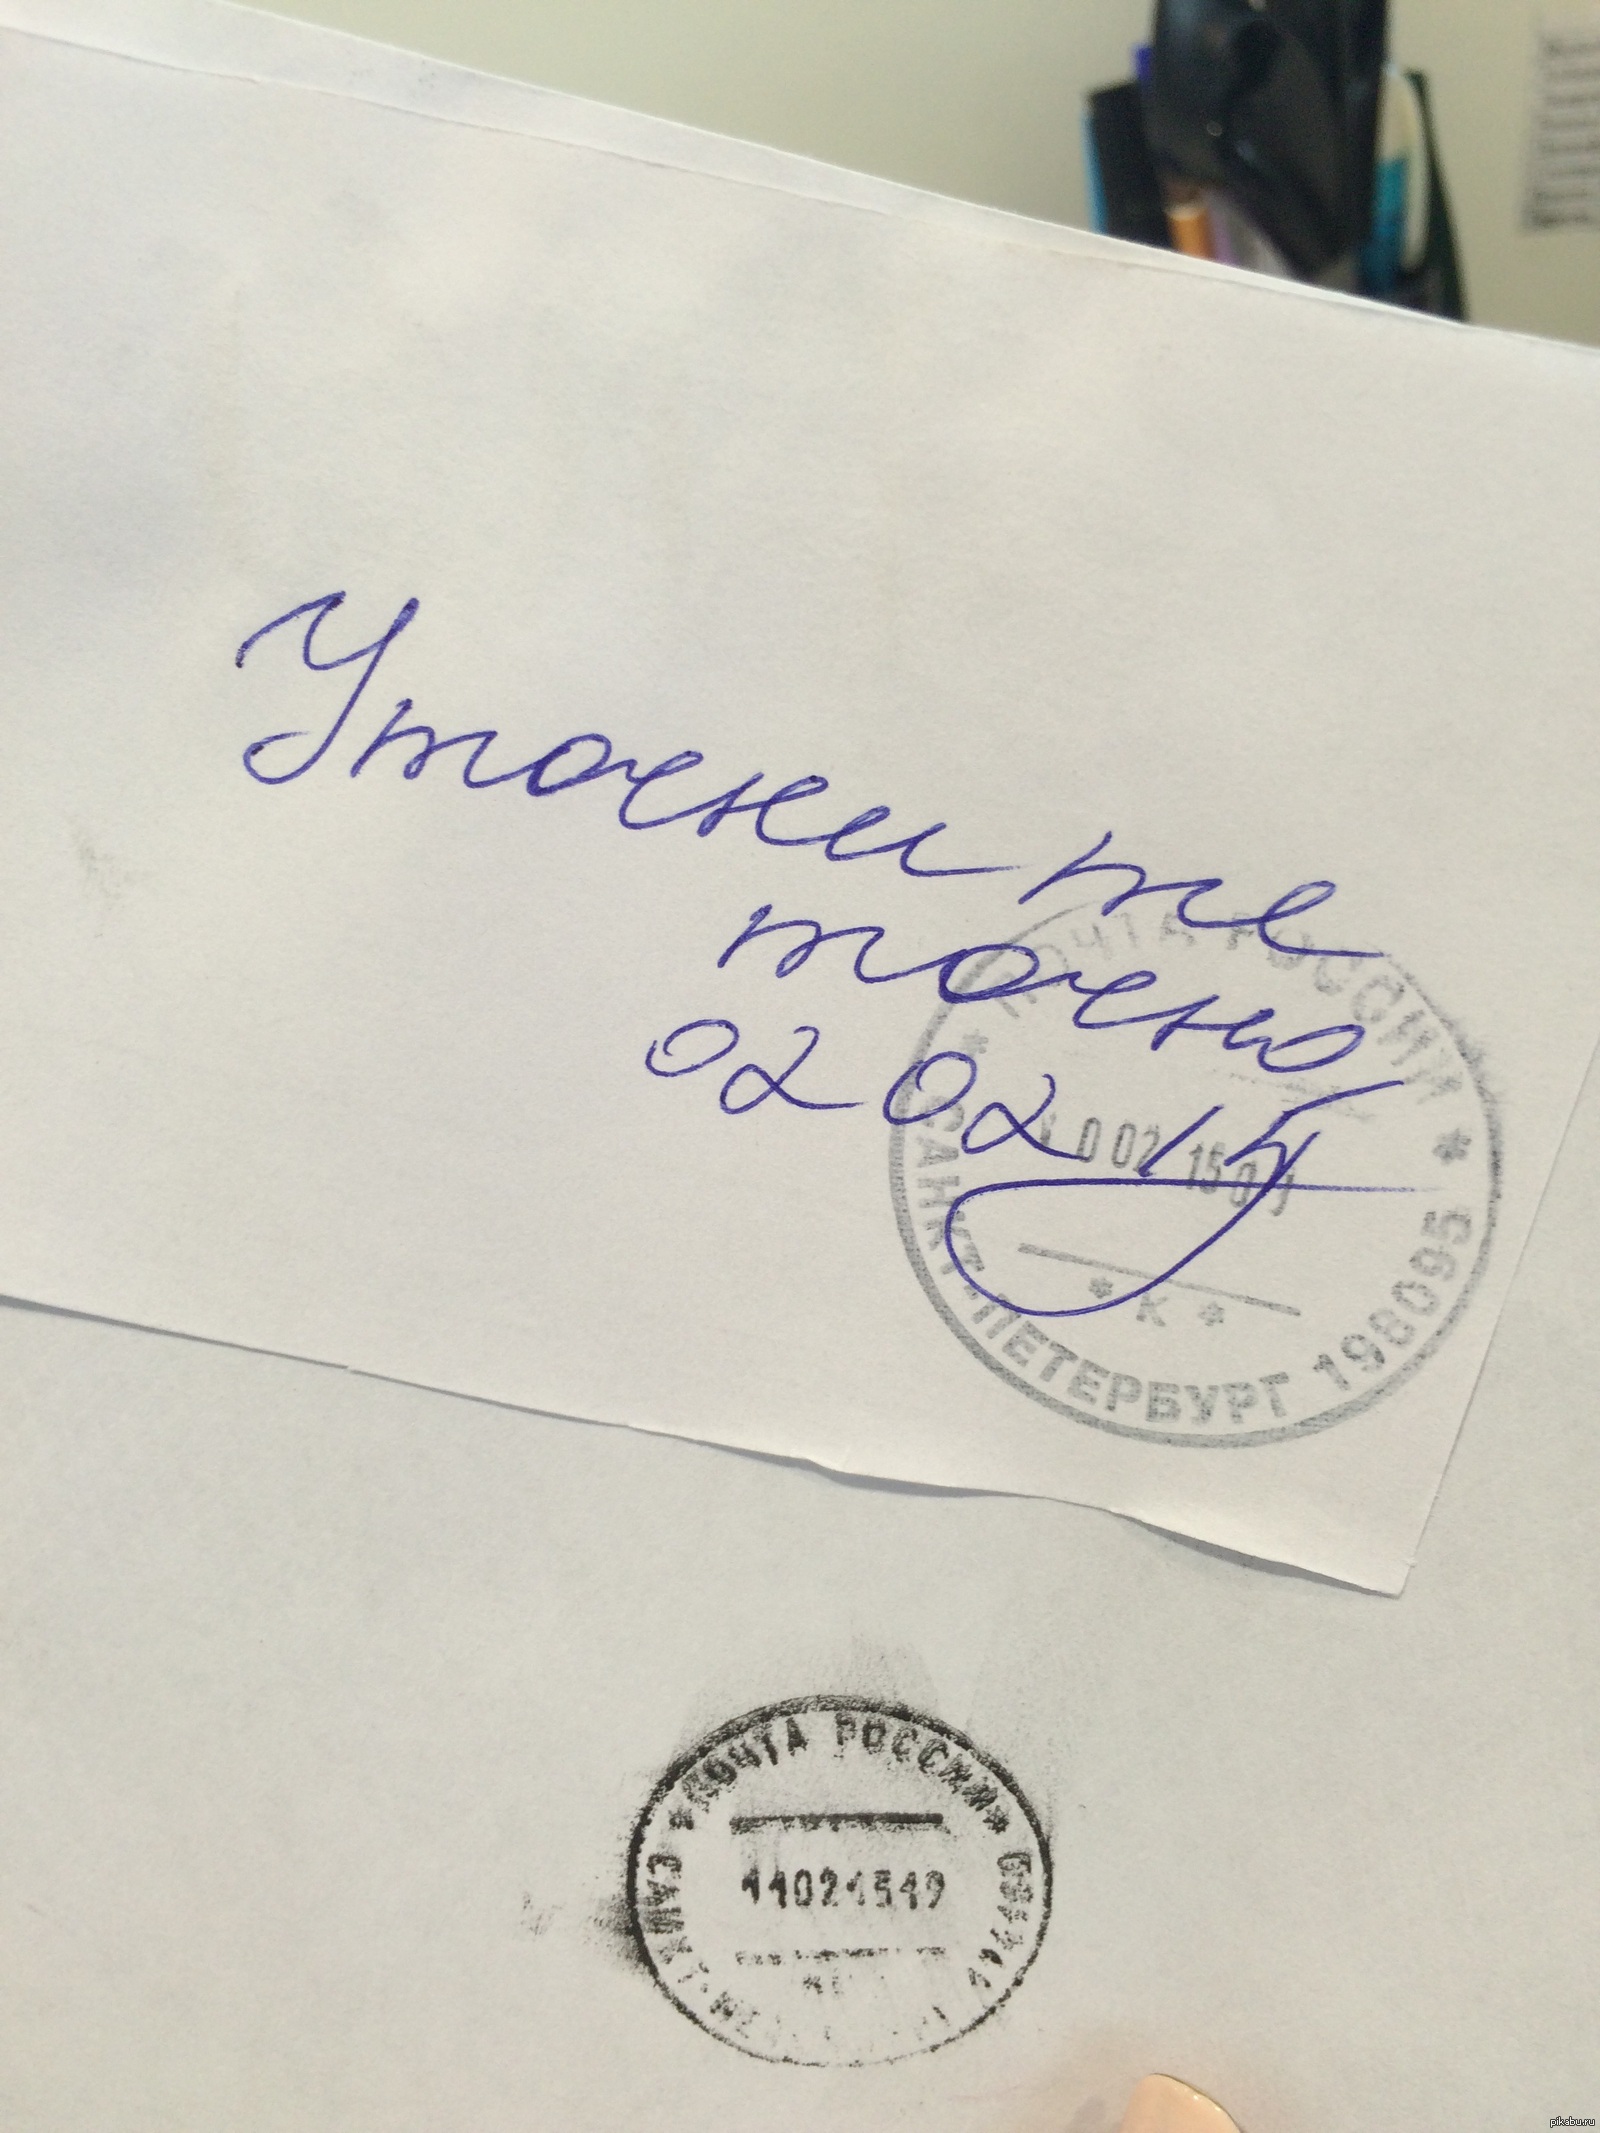 Уточните
точно
02 02 15
ПОЧТА РОССИИ
* К *
САНКТ-ПЕТЕРБУРГ 198095
ПОЧТА РОССИИ
САНКТ-
pikabu.ru